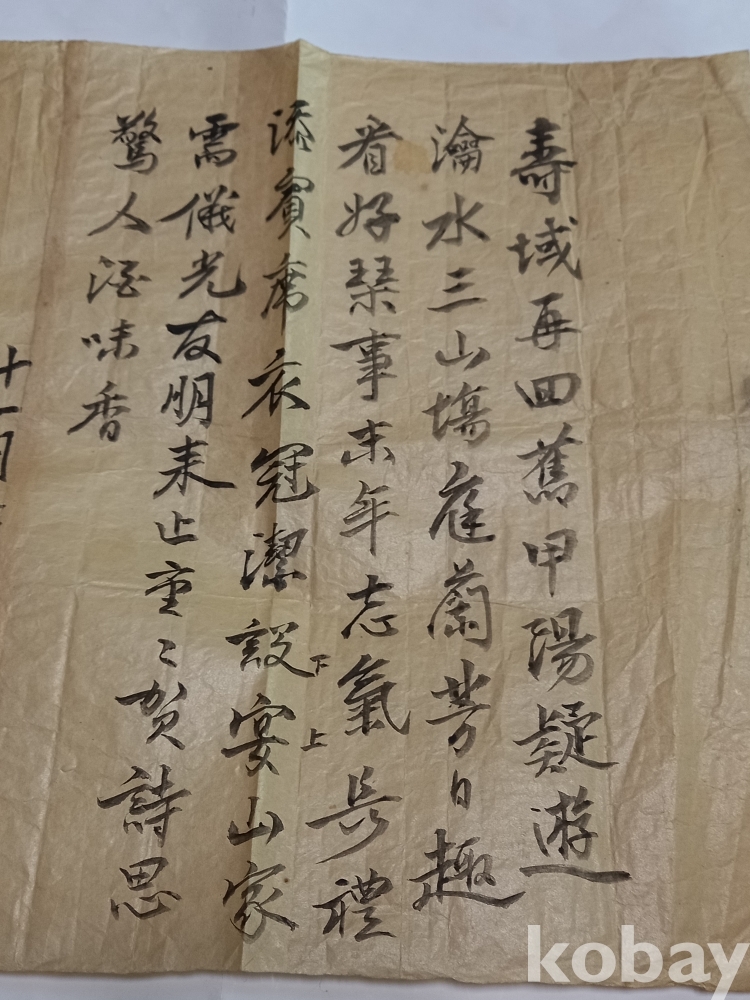 壽域再回舊甲陽疑遊
瀛水三山塲庭蘭芳日趣
看好琹事末年志氣長禮
添賓席衣冠潔設宴山家
下
上
需儀光友朋来止重〻賀詩思
驚人酒味香
十一月
kobay